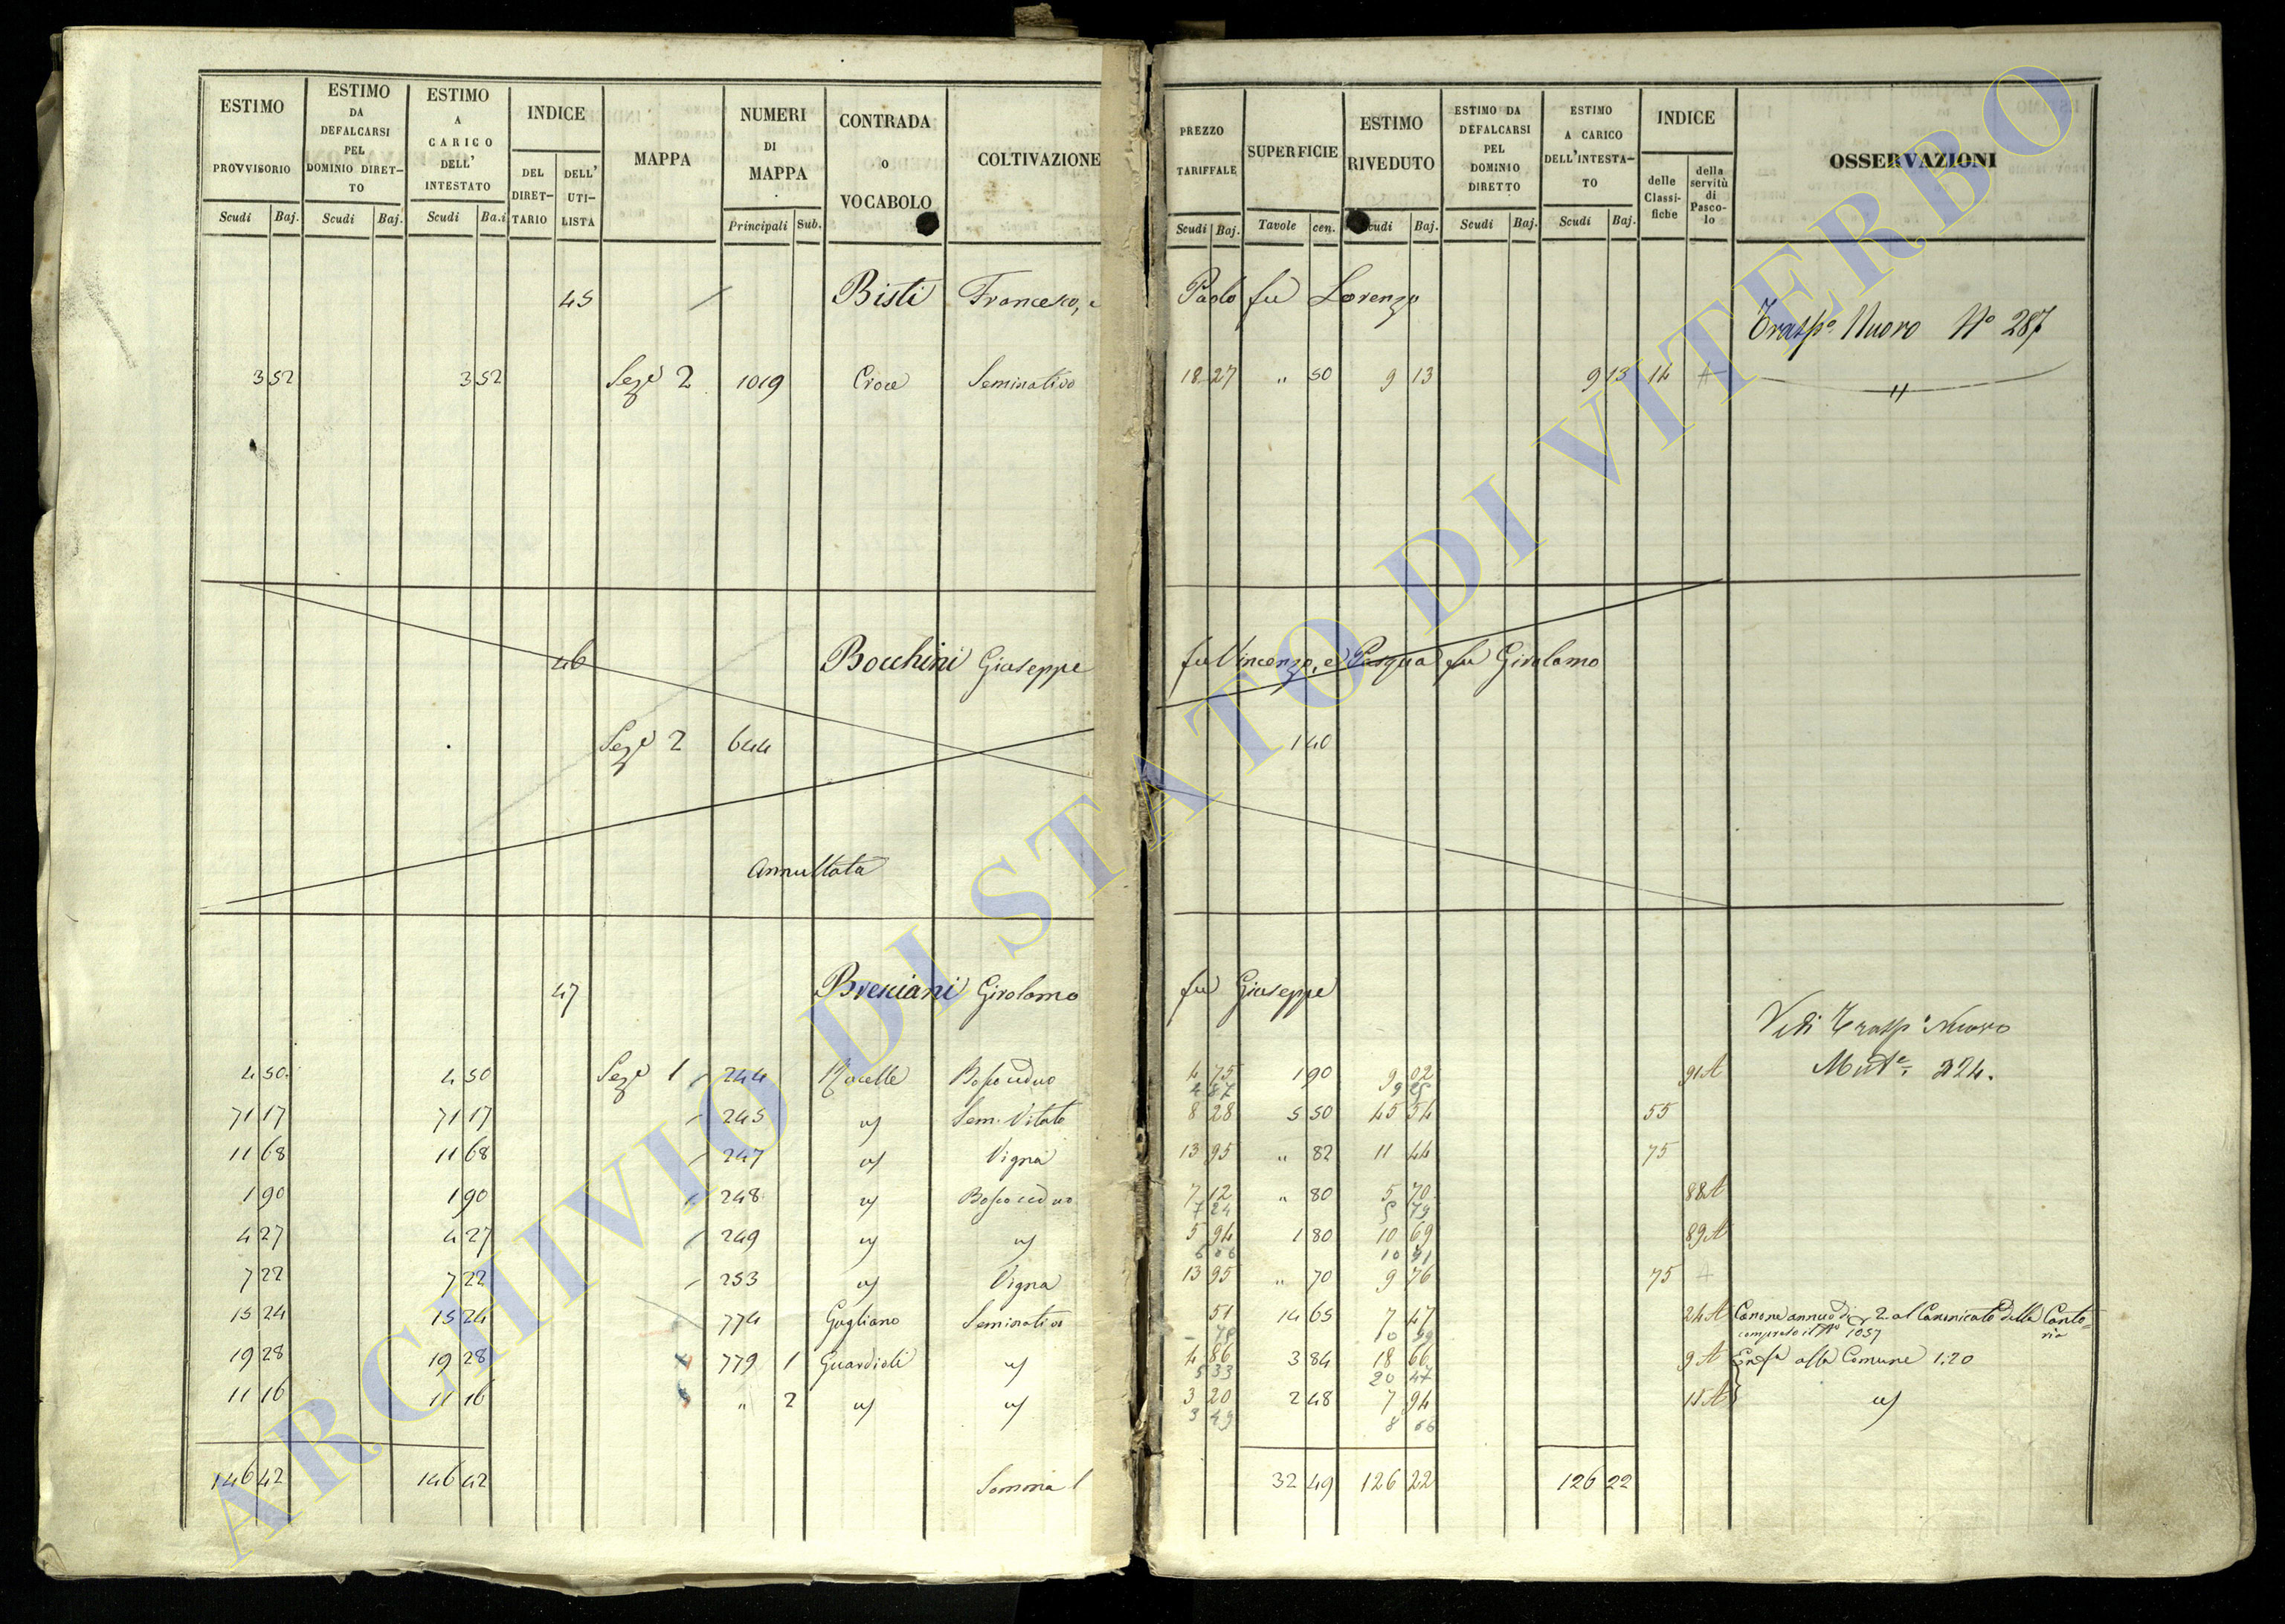 ESTIMO PROVVISORIO Scudi Baj.
ESTIMO DA DEFALCARSI PEL DOMINIO DIRETTO Scudi Baj.
ESTIMO A CARICO DELL' INTESTATO Scudi Ba.i
INDICE DEL DIRETTARIO DELL' UTILISTA
MAPPA
NUMERI DI MAPPA Principali Sub.
CONTRADA o VOCABOLO
COLTIVAZIONE
PREZZO TARIFFALE Scudi Baj.
SUPERFICIE Tavole cen.
ESTIMO RIVEDUTO Scudi Baj.
ESTIMO DA DEFALCARSI PEL DOMINIO DIRETTO Scudi Baj.
ESTIMO A CARICO DELL'INTESTATO Scudi Baj.
INDICE delle Classifiche della servitù di Pascolo
OSSERVAZIONI
45 Bisti Francesco, e Paolo fu Lorenzo
Trasp.o Nuovo No 287
3 52 3 52 Seze 2 1019 Croce Seminativo 18 27 " 50 9 13 9 13 14 A "
46 Bocchini Giuseppe fu Vincenzo, e Pasqua fu Girolamo
Seze 2 644 1 40
Annullata
47 Bresciani Girolamo fu Giuseppe
Vedi Trasp.o Nuovo
Mut.e 224.
4 50 4 50 Seze 1 244 Rocelle Bosco ceduo 4 75 1 90 9 02 91 A
4 87 9 25
71 17 71 17 245 " Sem. Vitato 8 28 5 50 45 54 55
11 68 11 68 247 " Vigna 13 95 " 82 11 44 75
1 90 1 90 248 " Bosco ceduo 7 12 " 80 5 70 88 A
7 24 5 79
4 27 4 27 249 " " 5 94 1 80 10 69 89 A
6 06 10 91
7 22 7 22 253 " Vigna 13 95 " 70 9 76 75 A
15 24 15 24 774 Gugliano Seminativo 51 14 65 7 47 24 A Canone annuo di 2. al Canonicato della Cantoria
- 75 10 99 compreso il No 1057
19 28 19 28 779 1 Guardioli " 4 86 3 84 18 66 9 A Enfa alla Comune 1:20
5 33 20 47
11 16 11 16 " 2 " " 3 20 2 48 7 94 11 A "
3 49 8 66
146 42 146 42 Somma 32 49 126 22 126 22
ARCHIVIO DI STATO DI VITERBO